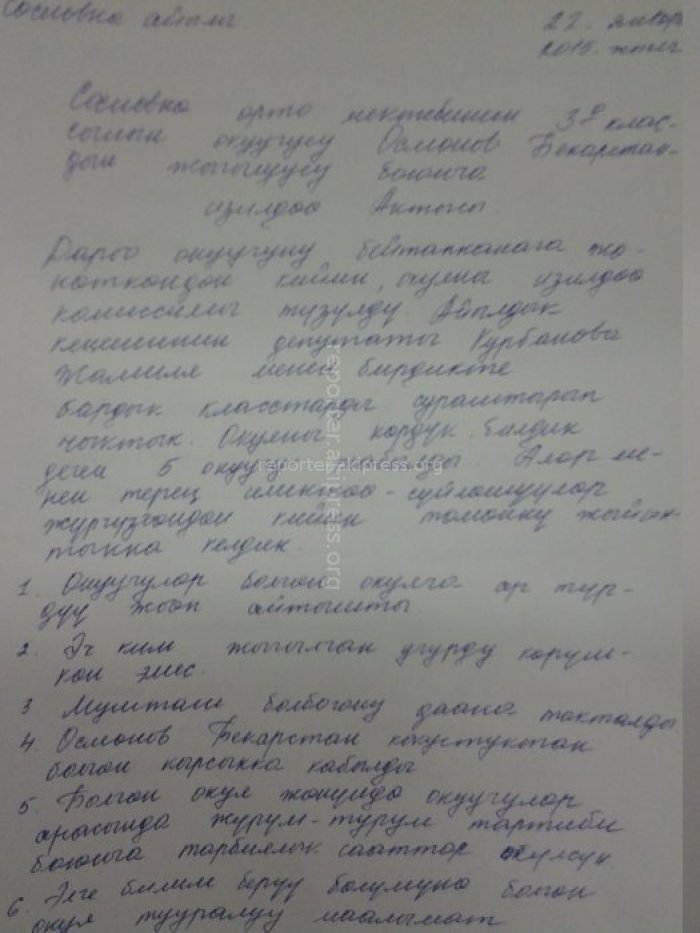 Сосновка айылы
27. январь
2015. жыл
Сосновка орто мектебинин 3г клас-
сынын окуучусу Осмонов Бекарстан-
дын жыгылуусу боюнча
изилдөө Актысы.
Дароо окуучуну бейтапканага жө-
нөткөндөн кийин, окуяны изилдөө
комиссиясы түзүлдү. Айылдык
кеңешинин депутаты Курбанова
Жамиля менен бирдикте
бардык класстарды сураштырып
чыктык. Окуяны көрдүк, билдик
деген 5 окуучу табылды. Алар ме-
нен терең иликтөө-сүйлөшүүлөр
жүргүзгөндөн кийин төмөнкү жыйын-
тыкка келдик.
1. Окуучулар болгон окуяга ар түр-
дүү жооп айтышты.
2. Эч ким жыгылган учурду көрүш-
көн эмес.
3 Мушташ болбогону даана такталды.
4. Осмонов Бекарстан кокустуктан
болгон кырсыкка кабылды
5. Болгон окуя жөнүндө окуучулар
арасында жүрүм-турум тартиби
боюнча тарбиялык сааттар өтүлсүн
6. Элге билим берүү бөлүмүнө болгон
окуя тууралуу маалымат
reporter.akipress.org
reporter.akipress.org